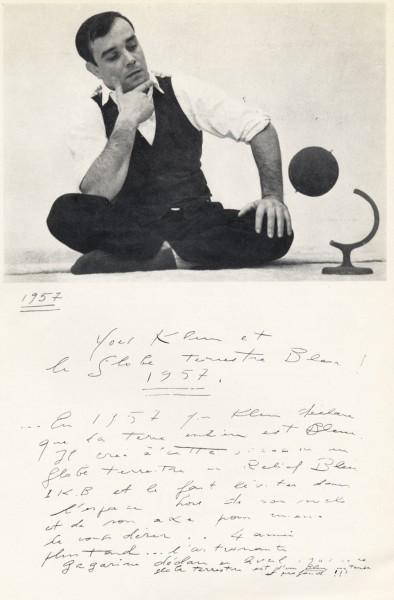 1957
Yves Klein et
le Globe terrestre Bleu !
1957.
... En 1957 Y. Klein déclare
que la terre entière est Bleue.
Il crée à cette un
Globe terrestre en Relief Bleu
I.K.B et le fait léviter dans
l'espace hors de son socle
et de son axe pour mieux
le considérer ... 4 années
plus tard ... l'astronaute
Gagarine déclare en Avril
de la terrestre est d'un bleu
et profond !!!